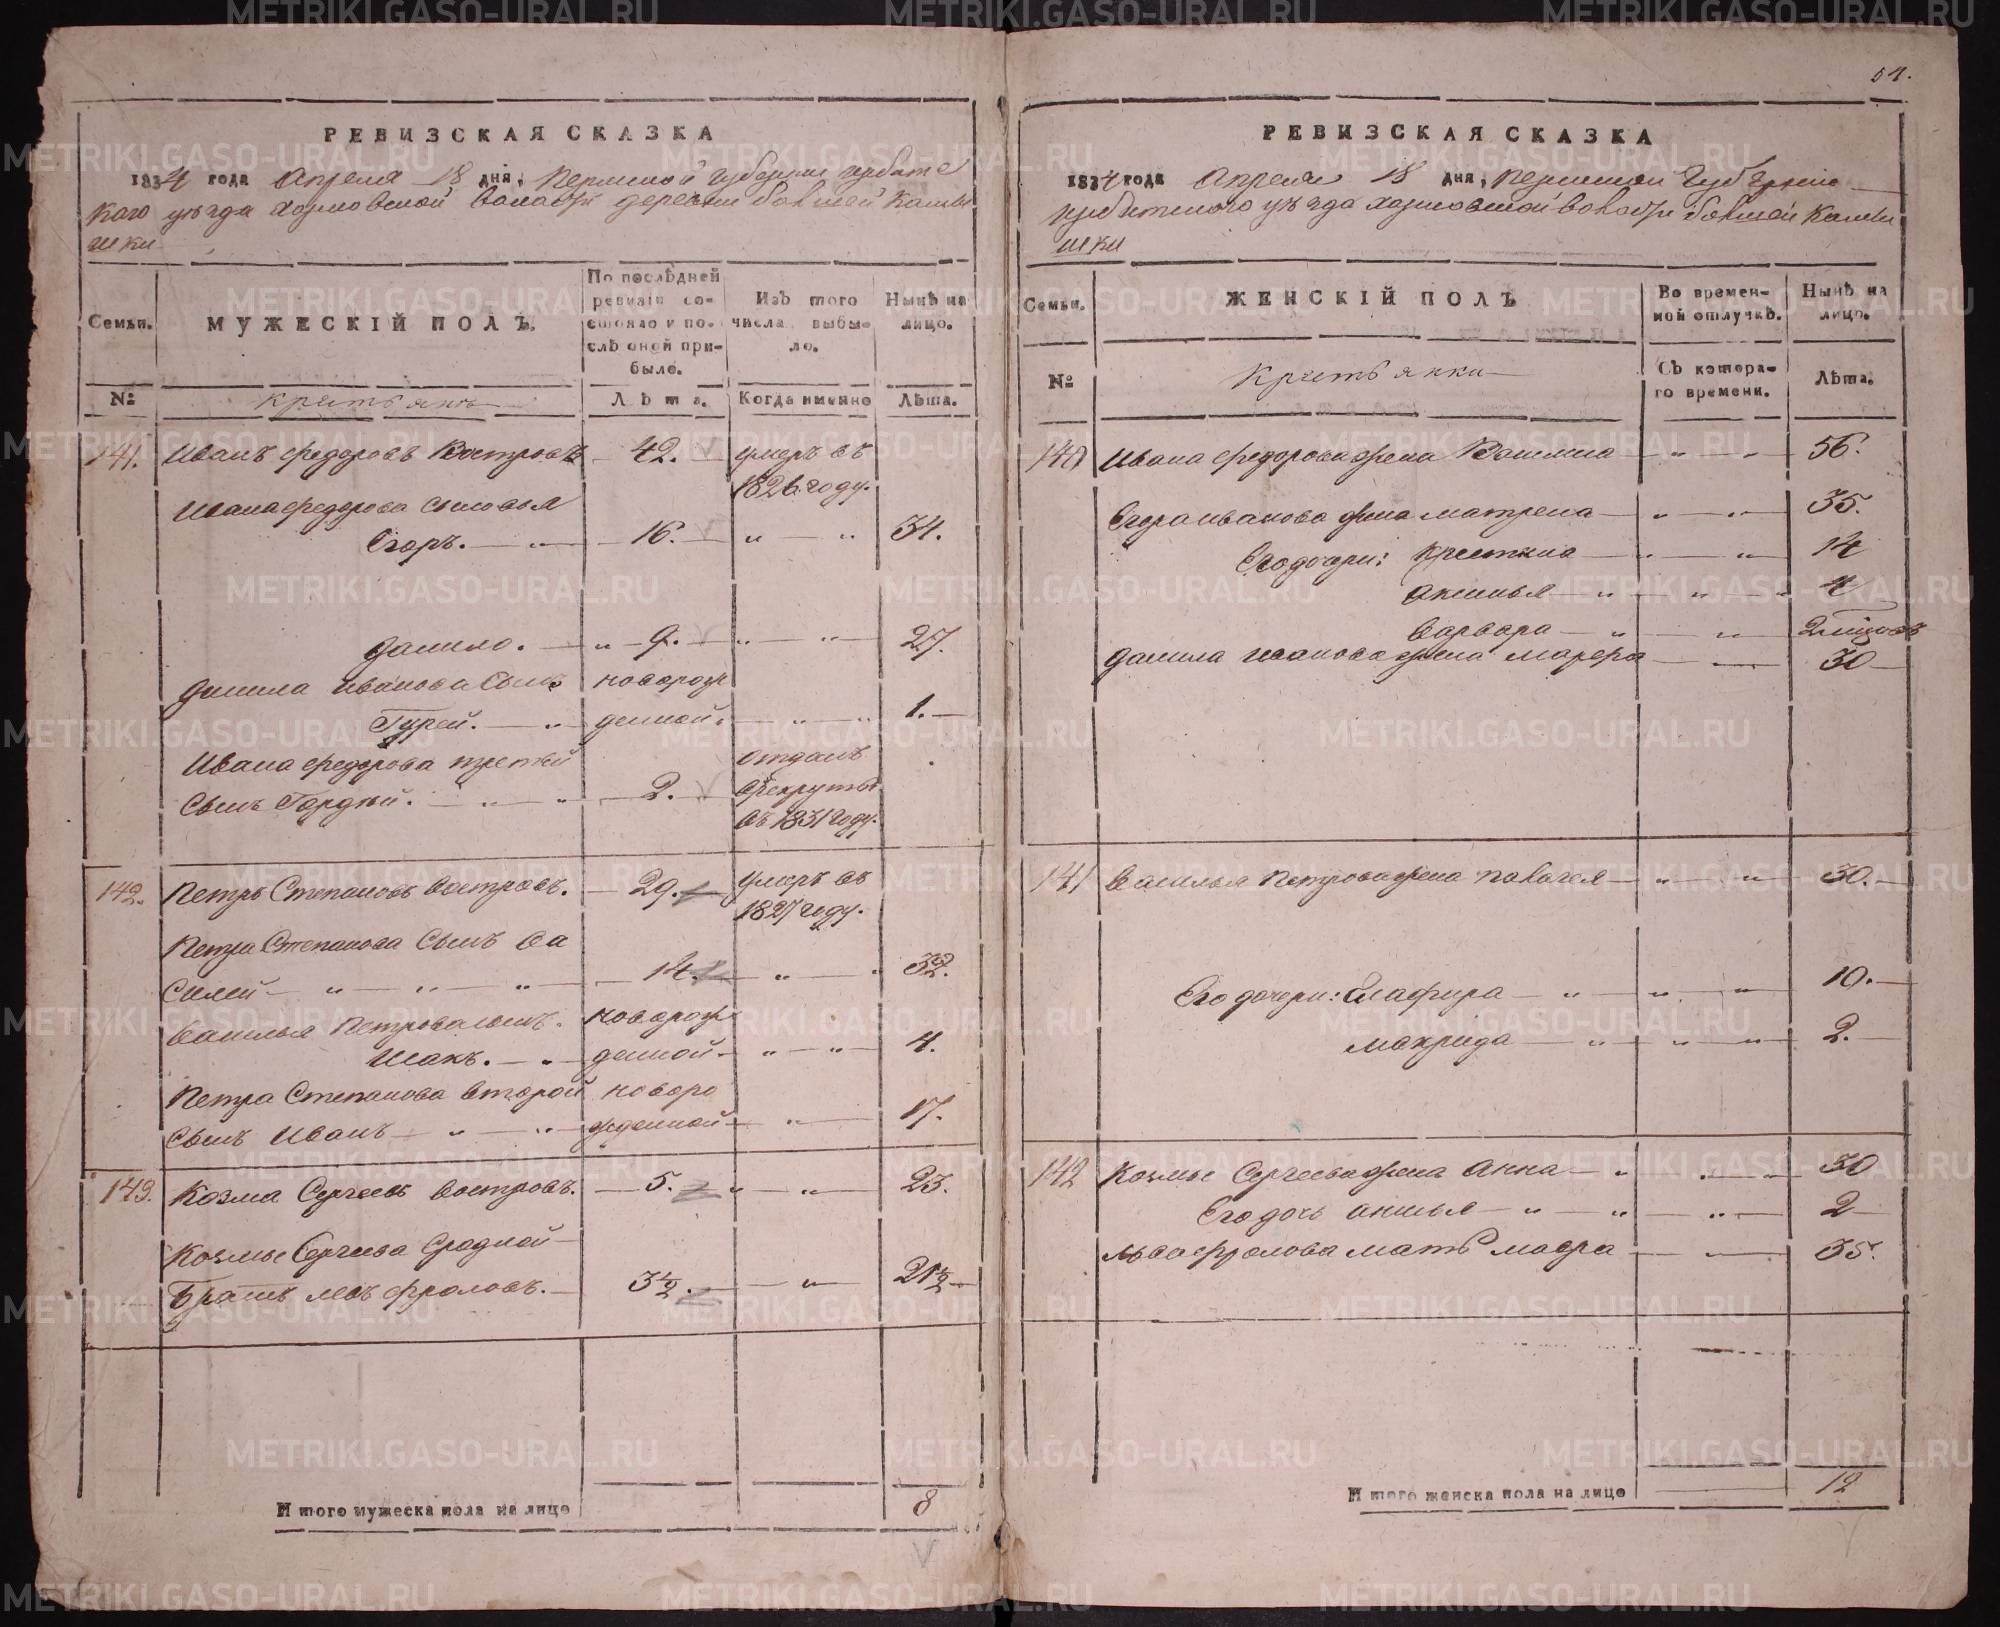 54.
РЕВИЗСКАЯ СКАЗКА
1834 года Апреля 18 дня, Пермской губернии Ирбитс
каго уезда волости деревни
шки
Семьи.
МУЖЕСКІЙ ПОЛЪ.
По послѣдней ревизіи состояло и послѣ оной прибыло.
Изъ того числа выбыло.
Нынѣ на лицо.
№
крестьянъ
Лѣта.
Когда именно
Лѣта.
141. Иванъ Федоровъ Востровъ 42. умеръ въ
1826 году.
Ивана Федорова сыновья
Егоръ. 16. 34.
Данило. 9. 27.
Данила Иванова сынъ новорож
Гурей. денной. 1.
Ивана Федорова третей отданъ
сынъ Гордѣй. 2. в рекруты
въ 1831 году.
142. Петръ Степановъ Востровъ. 29. умеръ въ
1827 году.
Петра Степанова сынъ Ва
силей 14. 32.
Василья Петрова сынъ новорож
Исакъ. денной 4.
Петра Степанова второй новоро
сынъ Иванъ жденной 17.
143. Козма Сергеевъ Востровъ. 5. 23.
Козмы Сергеева сродной
братъ Левъ Фроловъ. 3½. 21½
Итого мужеска пола на лицо 8
РЕВИЗСКАЯ СКАЗКА
1834 года Апреля 18 дня, Пермской Губернии
Ирбитского уезда волости
шки
Семьи.
ЖЕНСКІЙ ПОЛЪ
Во временной отлучкѣ.
Нынѣ на лицо.
№
Крестьянки
Съ котораго времени.
Лѣта.
140 Ивана Федорова жена 56.
Егора Иванова жена Матрена 35.
Его дочери: 14
Аксинья 4
Варвара
Данила Иванова жена Марфа 30
141 Василья Петрова жена Палагея 30.
Его дочери: Глафира 10.
Макрида 2.
142 Козмы Сергеева жена Анна 30
Его дочь 2
Льва Фролова мать Мавра 55.
Итого женска пола на лицо 12
METRIKI.GASO-URAL.RU